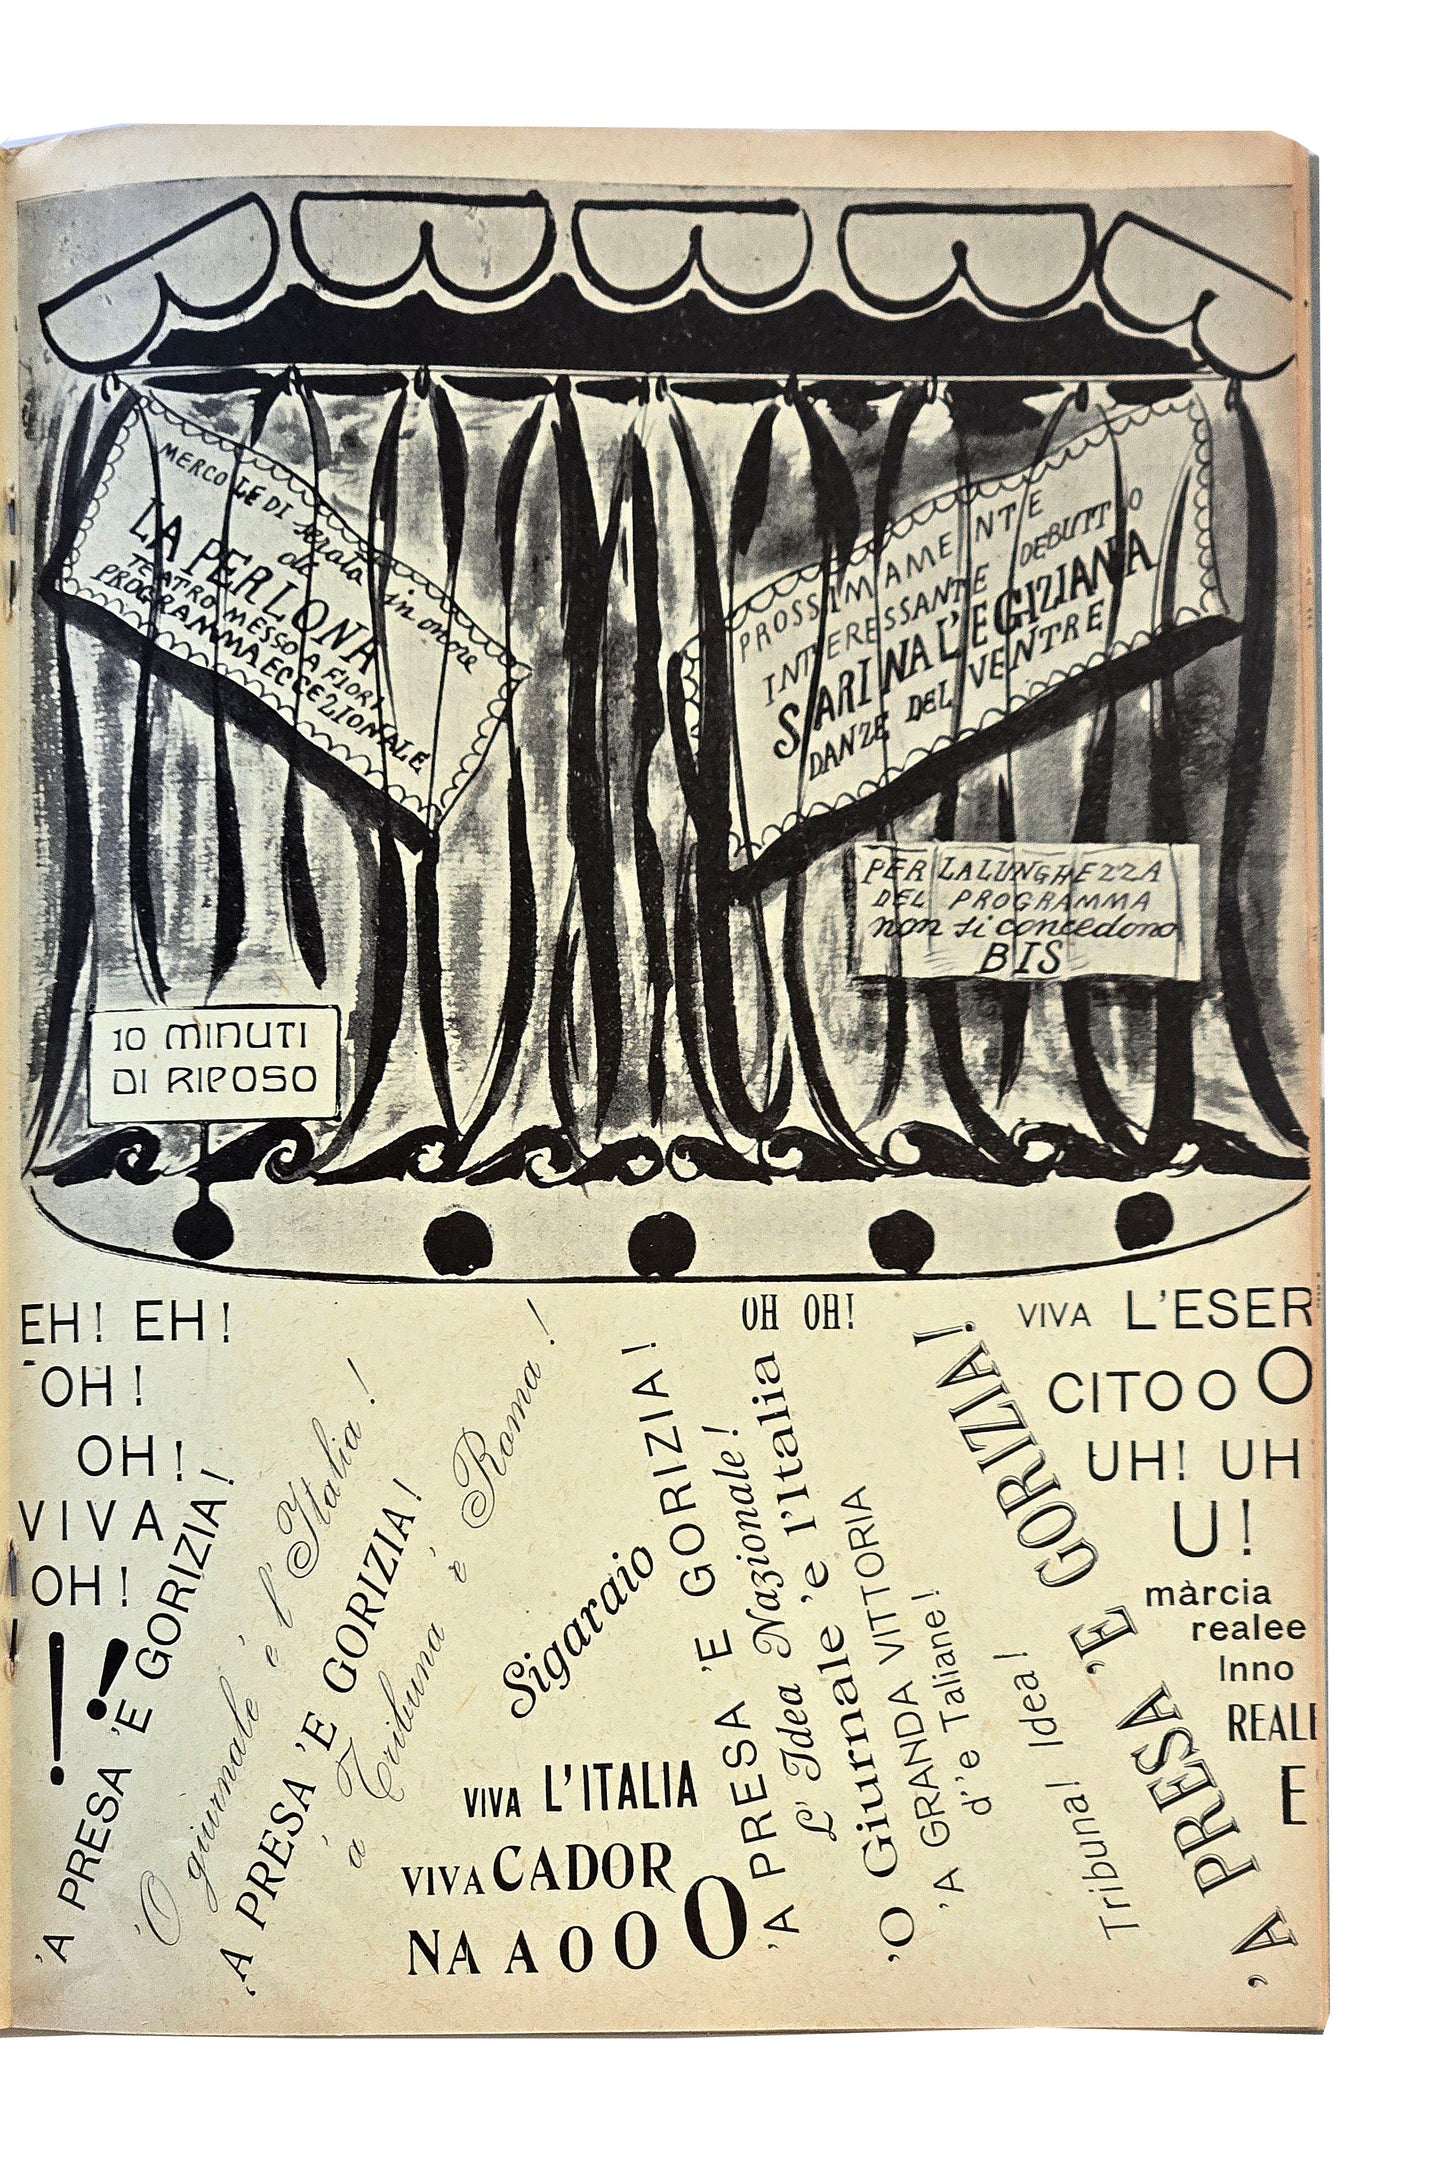 MERCOLEDI serata
di in onore
LA PERLONA
TEATRO MESSO A FIORI
PROGRAMMA ECCEZIONALE
PROSSIMAMENTE
INTERESSANTE DEBUTTO
SARINA L'EGIZIANA
DANZE DEL VENTRE
PER LA LUNGHEZZA
DEL PROGRAMMA
non si concedono
BIS
10 MINUTI
DI RIPOSO
EH! EH!
OH!
OH!
VIVA
OH!
!!
'A PRESA 'E GORIZIA!
'O giurnale è l'Italia!
'A PRESA 'E GORIZIA!
'a Tribuna 'è Roma!
Sigaraio
VIVA L'ITALIA
VIVA CADOR
NA A O O O
OH OH!
'A PRESA 'E GORIZIA!
L' Idea Nazionale!
'O Giurnale 'e l'Italia
'A GRANDA VITTORIA
d''e Taliane!
Tribuna! Idea!
'A PRESA 'E GORIZIA!
VIVA L'ESER
CITO O O
UH! UH
U!
màrcia
realee
Inno
REALE
E